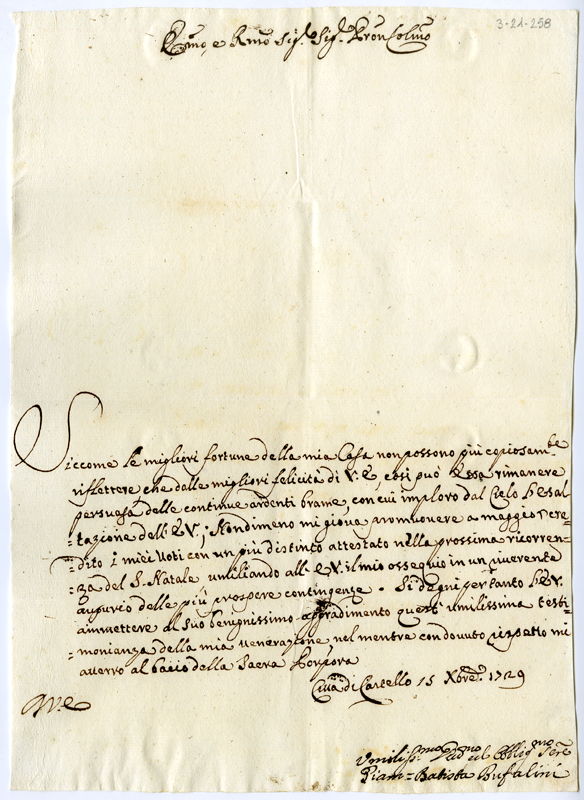 3-21-258
Emo, e Rmo Sig.r Sig.r Pron Colmo
Siccome le migliori fortune della mia Casa non possono più copiosam.te
riflettere che dalle migliori felicità di V. E., così può Essa rimanere
persuasa delle continue ardenti brame, con cui imploro dal Cielo l'esal
tazione dell' E.V.; Nondimeno mi giova promuovere a maggior cre-
dito i miei Voti con un più distinto attestato nella prossima ricorren-
za del S. Natale umiliando all' E.V. il mio ossequio in un riverente
augurio delle più prospere contingenze. Si degni pertanto l'E.V.
ammettere al suo benignissimo aggradimento quest' umilissima testi=
=monianza della mia venerazione, nel mentre con dovuto rispetto mi
al bacio della Sacra Porpora
Città di Castello 15 Xbre 1729
Umiliss.mo ed Obblig.mo Serre
Giam=Batista Bufalini